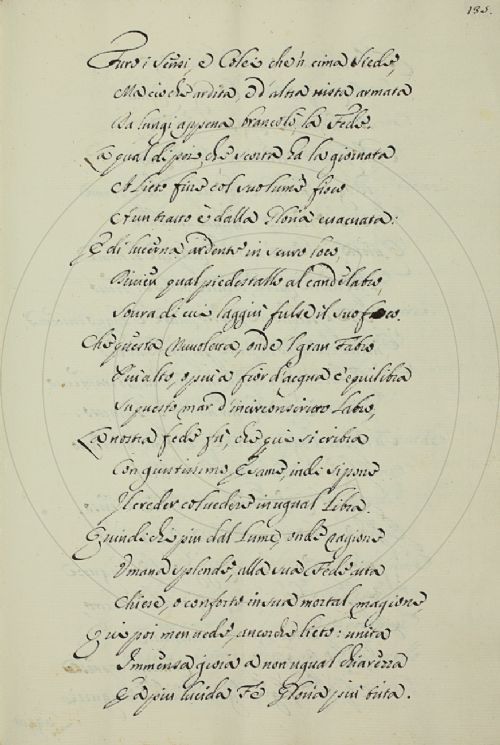 185.
Furo i sensi, e Cose che 'n cima siede,
Ma ciò che ardita, e d'altra vista armata
Da lungi appena brancolò la Fede.
La qual dipoi, che scorta ha la giornata
A lieto fine col suo lume fioco
A un tratto è dalla Gloria evacuata:
E di lucerna ardente in scuro loco,
qual piedestallo al candelabro,
Sovra di cui laggiù fulse il suo foco.
Che questa Nuvoletta, onde 'l gran Fabro
Qui alto, o più a fior d'acqua equilibra
Su questo mar d'incirconscritto Labro,
La nostra fede fu, che qui si cribra
Con giustissimo Esame, indi si pone
Il creder col vedere in ugual Libra.
Quindi chi più dal Lume, onde ragione
Umana splende, alla sua Fede aita
Chiese, o conforto in sua mortal magione,
Qui poi men vede, ancorchè lieto: unita
Immensa gioia a non ugual chiarezza
E a più lucida Fe Gloria più trita.